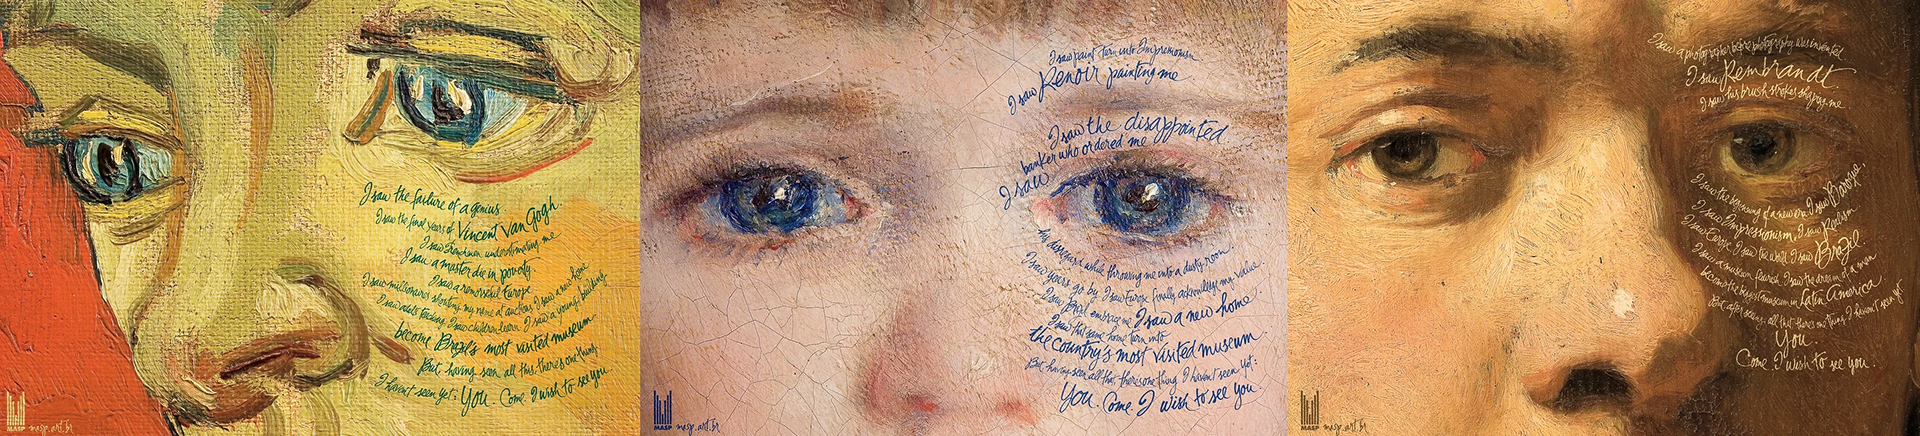 I saw the failure of a genius
I saw the final years of Vincent Van Gogh.
I saw Frenchmen underestimating me
I saw a master die in poverty
I saw a remorseful Europe
I saw millionaires shouting my name at auctions. I saw a new home
I saw adults teaching. I saw children learn. I saw a young building
become Brazil's most visited museum
But, having seen all this, there's one thing
I haven't seen yet: You. Come. I wish to see you.
MASP masp.art.br
I saw paint turn into Impressionism
I saw Renoir painting me
I saw the disappointed
banker who ordered me
I saw
his disregard while throwing me into a dusty room
I saw years go by. I saw Europe finally acknowledge my value.
I saw Brazil embrace me. I saw a new home
I saw that same home turn into
the country's most visited museum
But having seen all that, there's one thing I haven't seen yet:
You. Come. I wish to see you.
MASP masp.art.br
I saw a photographer before photography was invented
I saw Rembrandt.
I saw his brush strokes shaping me
I saw the beginning of a new era. I saw Baroque,
I saw Impressionism, I saw Realism
I saw Europe, I saw the world. I saw Brazil.
I saw a museum, I saw the dream of a man
become the biggest museum in Latin America
But after seeing all that there's one thing I haven't seen yet
You.
Come. I wish to see you.
MASP masp.art.br